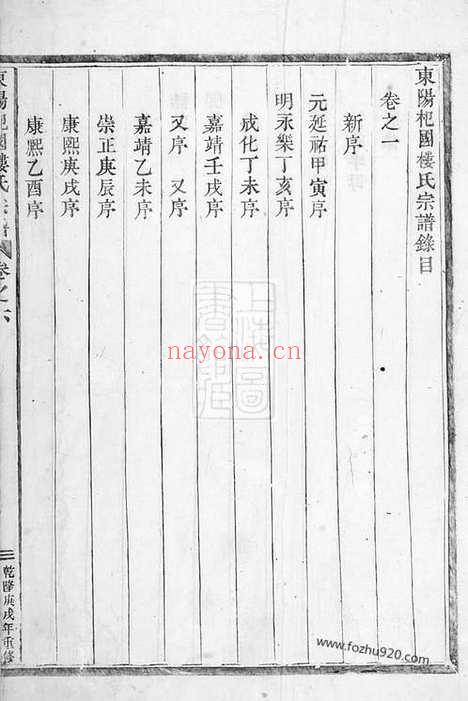 東陽杞國樓氏宗譜錄目
卷之一
新序
元延祐甲寅序
明永樂丁亥序
成化丁未序
嘉靖壬戌序
又序 又序
嘉靖乙未序
崇正庚辰序
康熙庚戌序
康熙乙酉序
東陽杞國樓氏宗譜
卷之
乾隆庚戌年重修
nayona.cn
www.fozhu920.com